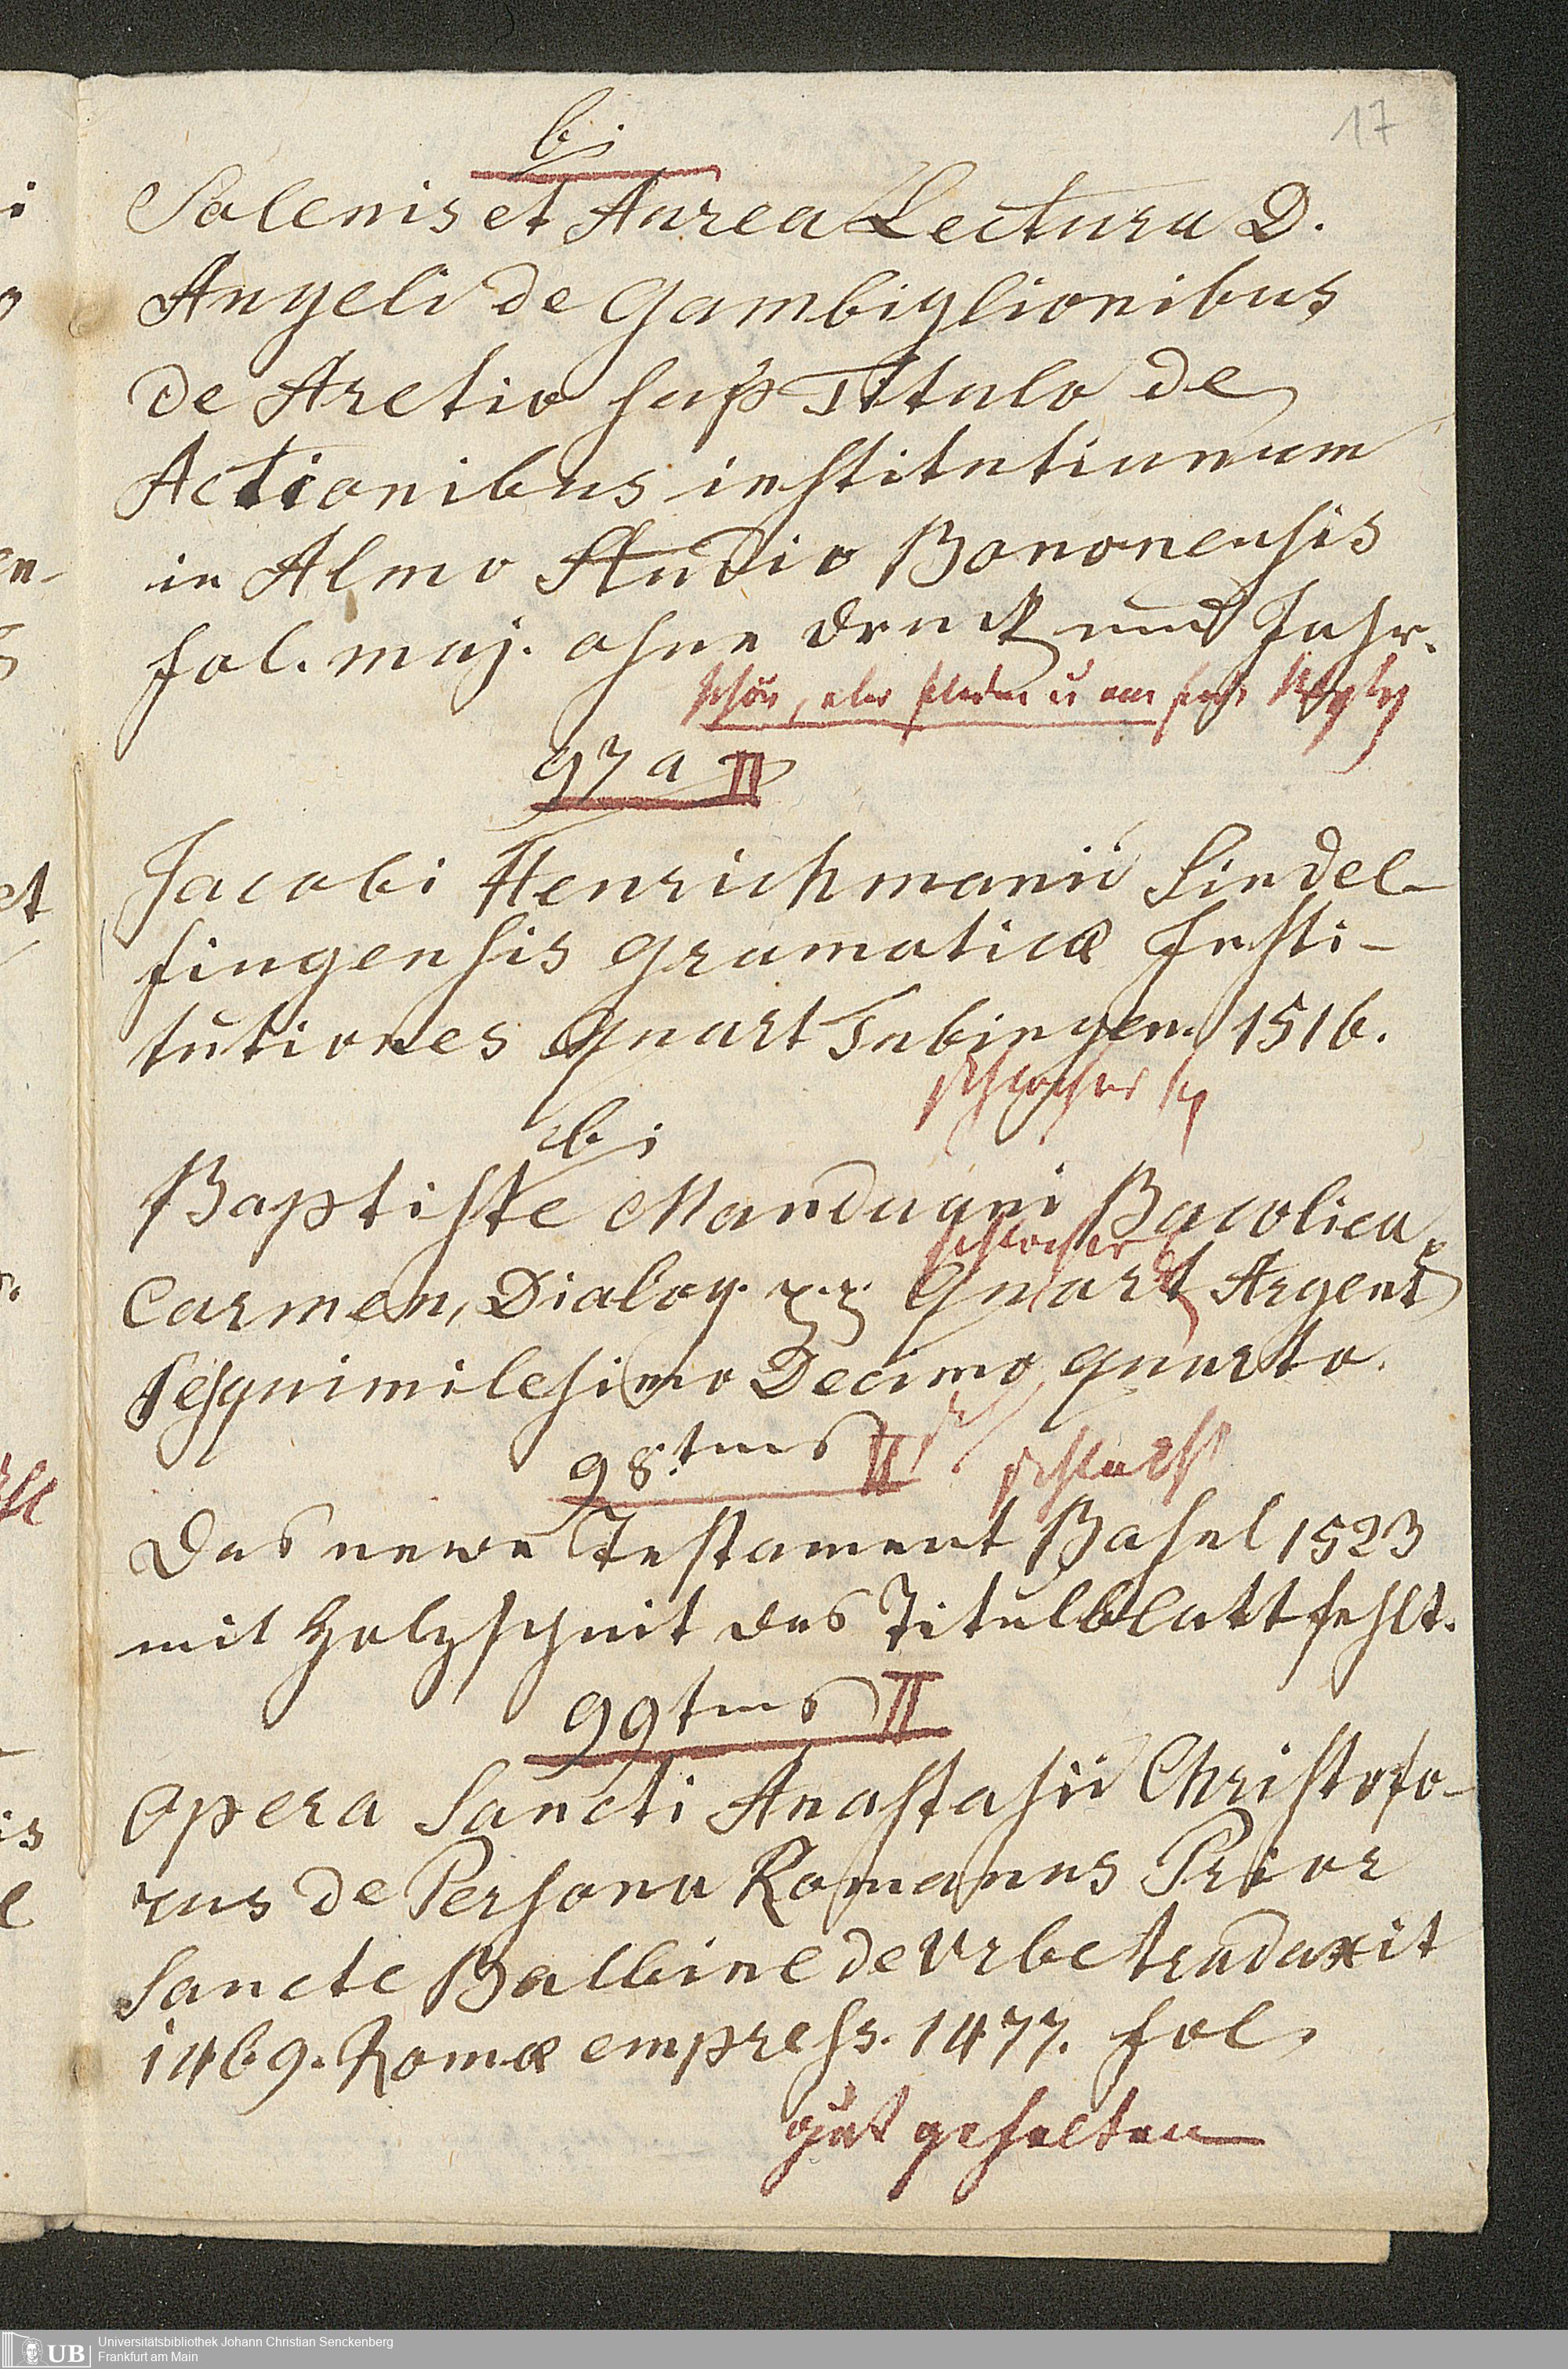 17
b;
Solenis et Aurea Lectura D.
Angeli de Gambiglionibus
de Aretio sup Titulo de
Actionibus institutionum
in Almo Studio Bononensis
fol. maj. ohne Druck und Jahr.
schön, aber
97 a II
Jacobi Henrichmanii Sindel-
fingensis Gramaticæ Insti-
tutiones Quart Tubingen. 1516.
b;
Baptiste Manduani Bucolica
Carmen, Dialog. Quart Argent
sesquimilesimo Decimo quarto.
98.tens II schlecht
Das newe Testament Basel 1523
mit Holzschnit das Titulblatt fehlt.
99tens II
Opera Sancti Anastasii Christofo-
rus de Persona Romanus Prior
Sancte Balbine de Urbe traduxit
1469. Romæ empress. 1477. fol.
gut gehalten
UB
Universitätsbibliothek Johann Christian Senckenberg
Frankfurt am Main